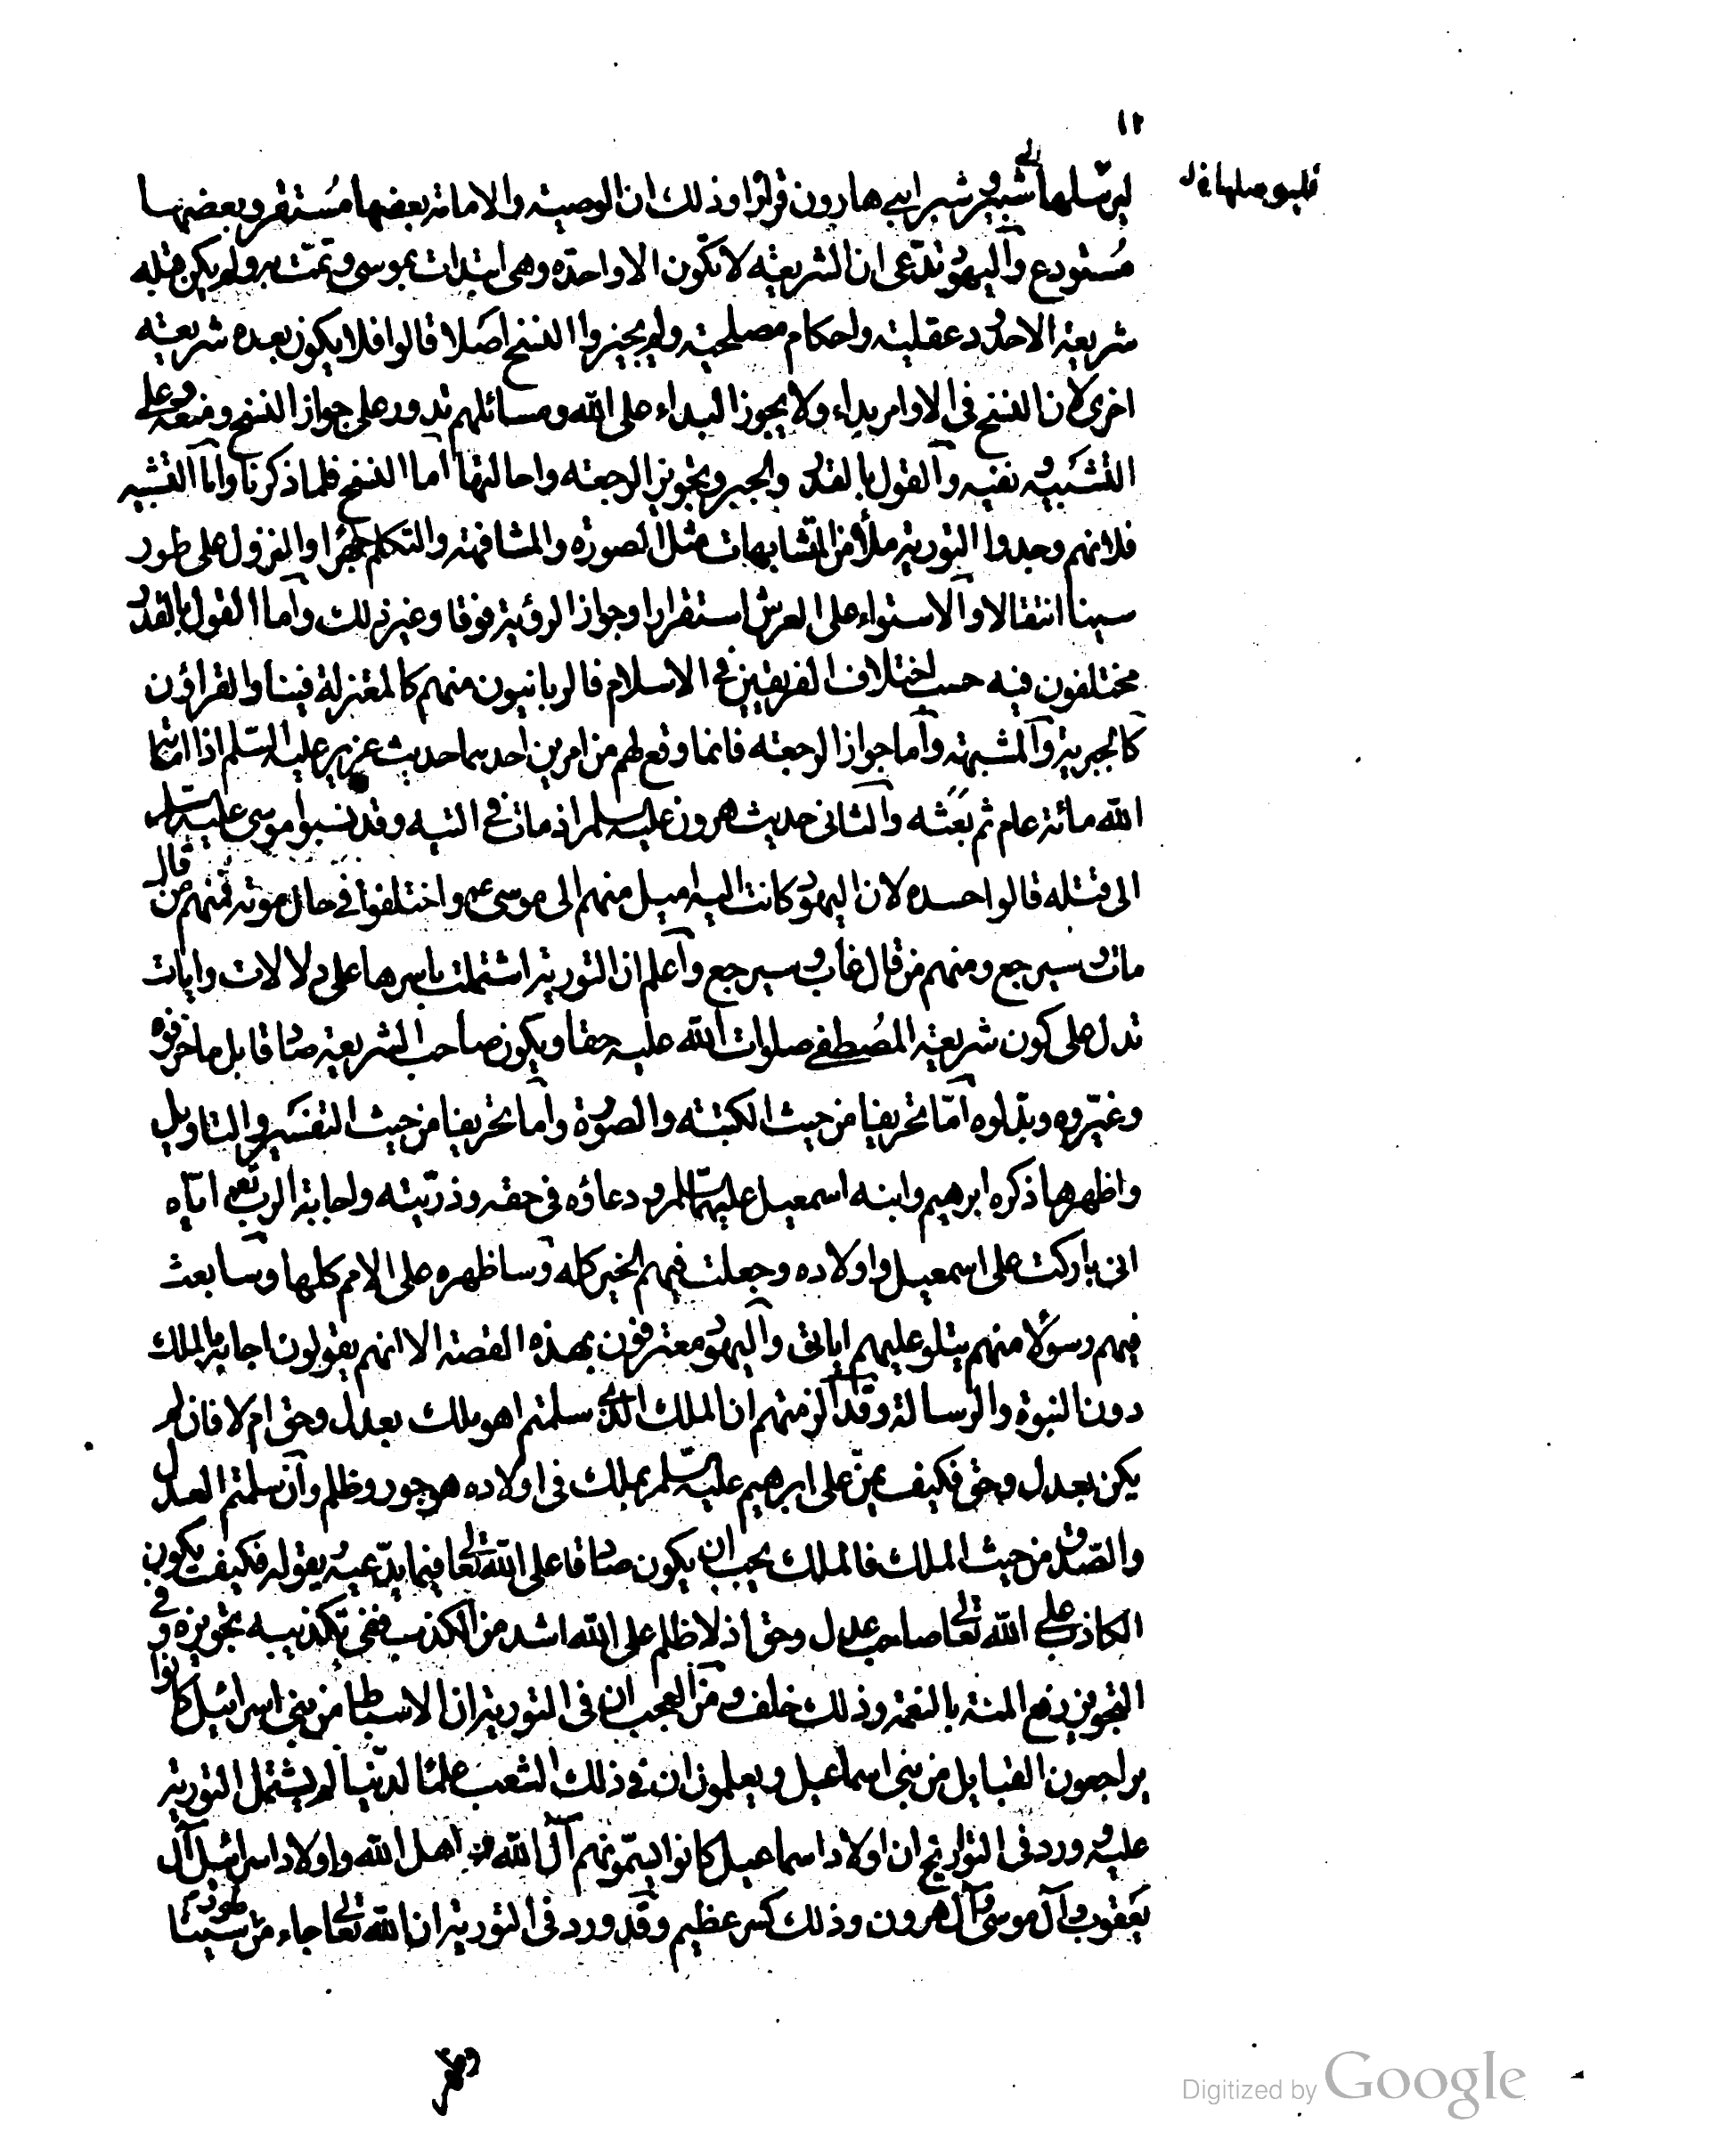 ١٢
ليرسلها الى شبير وشبر ابنى هارون قرارا وذلك ان الوصية والامامة بعضها مستقر وبعضها
مستودع واليهود تدعى ان الشريعة لا تكون الا واحدة وهى ابتدات بموسى وتمت به ولم يكن قبله
شريعة الا حدود عقلية واحكام مصلحية ولم يجيزوا النسخ اصلا قالوا فلا يكون بعده شريعة
اخرى لان النسخ فى الاوامر بداء ولا يجوز البداء على الله ومسائلهم تدور على جواز النسخ ومنعه وعلى
التشبيه ونفيه والقول بالقدر والجبر وتجويز الرجعة واحالتها اما النسخ فلما ذكرنا واما التشبيه
فلانهم وجدوا التورية ملأ من المتشابهات مثل الصورة والمشافهة والتكلم جهرا والنزول على طور
سينا انتقالا والاستواء على العرش استقرارا وجواز الرؤية فوقا وغير ذلك واما القول بالقدر
مختلفون فيه حسب اختلاف الفريقين فى الاسلام فالربانيون منهم كالمعتزلة فينا والقراؤن
كالجبرية والمشبهة واما جواز الرجعة فانما وقع لهم من امرين احدهما حديث عزير عليه السلم اذ اماته
الله مائة عام ثم بعثه والثانى حديث هرون عليه السلم اذ مات فى التيه وقد نسبوا موسى عليه السلم
الى قتله قالوا حسده لان اليهود كانت اليه اميل منهم الى موسى عم واختلفوا فى حال موته فمنهم من قال
مات وسيرجع ومنهم من قال غاب وسيرجع واعلم ان التورية اشتملت باسرها على دلالات وايات
تدل على كون شريعة المصطفى صلوات الله عليه حقا ويكون صاحب الشريعة صادقا بل ما حرفوه
وغيروه وبدلوه اما تحريفا من حيث الكتبة والصورة واما تحريفا من حيث التفسير والتاويل
واظهرها ذكره ابرهيم وابنه اسمعيل عليهما السلم ودعاؤه فى حقه وذريته واجابة الرب تعم اياه
انى باركت على اسمعيل واولاده وجعلت فيهم الخير كله وساظهره على الامم كلها وسابعث
فيهم رسولا منهم يتلو عليهم اياتى واليهود معترفون بهذه القصة الا انهم يقولون اجابه بالملك
دون النبوة والرسالة وقد الزمتهم ان الملك الذى سلمتم اهو ملك بعدل وحق ام لا فان لم
يكن بعدل وحق فكيف يمن على ابرهيم عليه السلم بملك فى اولاده هو جور وظلم وان سلمتم العدل
والصدق من حيث الملك فالملك يجب ان يكون صادقا على الله تعالى فيما يدعيه ويقوله فكيف يكون
الكاذب على الله تعالى صاحب عدل وحق اذ لا ظلم على الله اشد من الكذب ففى تكذيبه تجويزه وفى
التجويز رفع المنة بالنعمة وذلك خلف ومن العجب ان فى التورية ان الاسباط من بنى اسرائيل كانوا
يراجعون القبايل من بنى اسماعيل ويعلمون ان فى ذلك الشعب علما لدنيا لم يشتمل التورية
عليه وورد فى التواريخ ان اولاد اسماعيل كانوا يسمونهم آل الله واهل الله واولاد اسرائيل آل
يعقوب وآل موسى وآل هرون وذلك كسر عظيم وقد ورد فى التورية ان الله تعالى جاء من طور سينا
وظهر